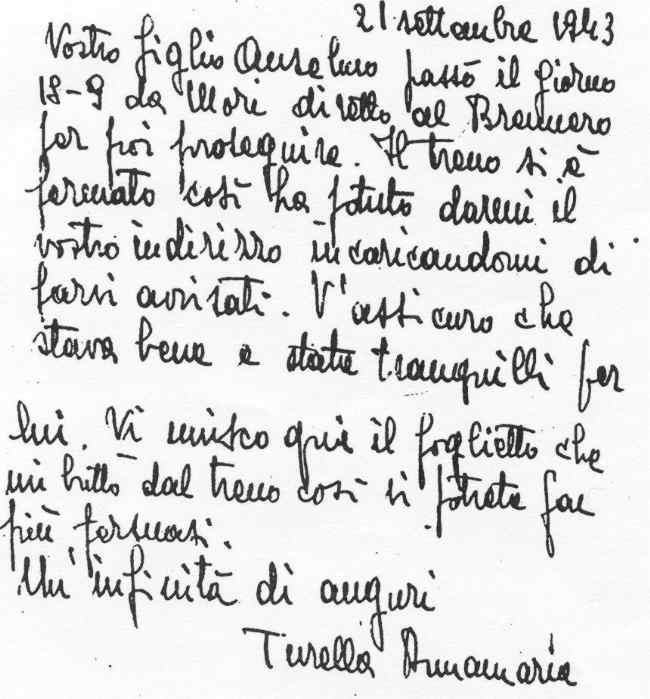 21 settembre 1943
Vostro figlio Anselmo passò il giorno
18-9 da Mori diretto al Brennero
per poi proseguire. Il treno si è
fermato così ha potuto darmi il
vostro indirizzo incaricandomi di
farvi avvisati. V'assicuro che
stava bene e state tranquilli per
lui. Vi unisco qui il foglietto che
mi buttò dal treno così vi potrete far
più persuasi.
Un'infinità di auguri
Turella Annamaria